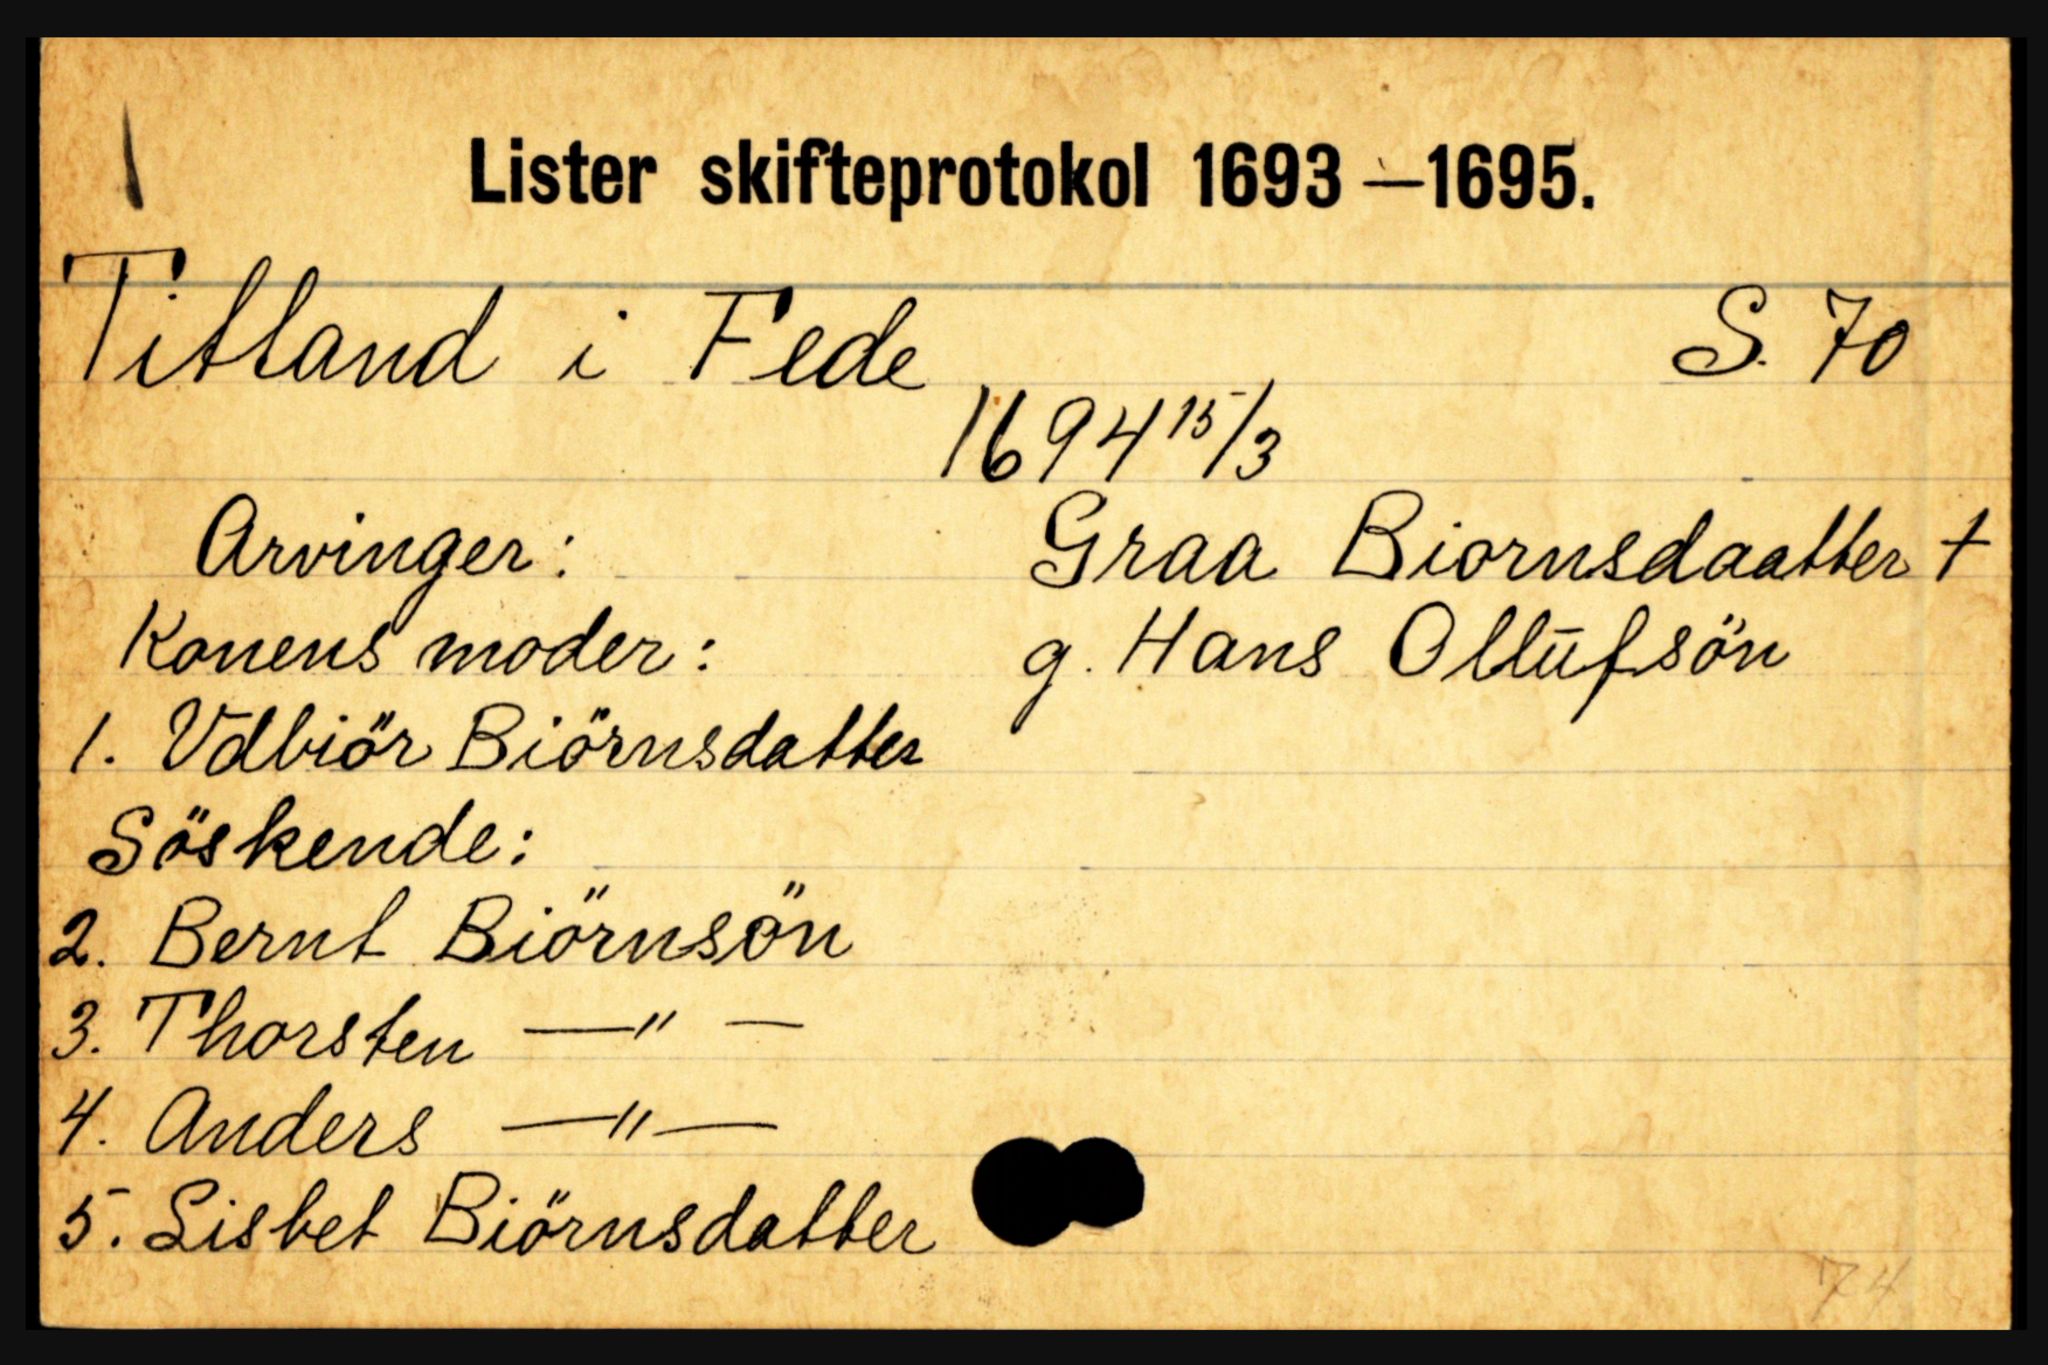 Lister skifteprotokol 1693—1695.
Titland i Fede S. 70
1694 15/3
Arvinger: Graa Biornsdaatter +
Konens moder: g. Hans Ollūfsön
1. Vdbiör Biörnsdatter
Söskende:
2. Bernt Biörnsön
3. Thorsten —"—
4. Anders —"—
5. Lisbet Biörnsdatter
74